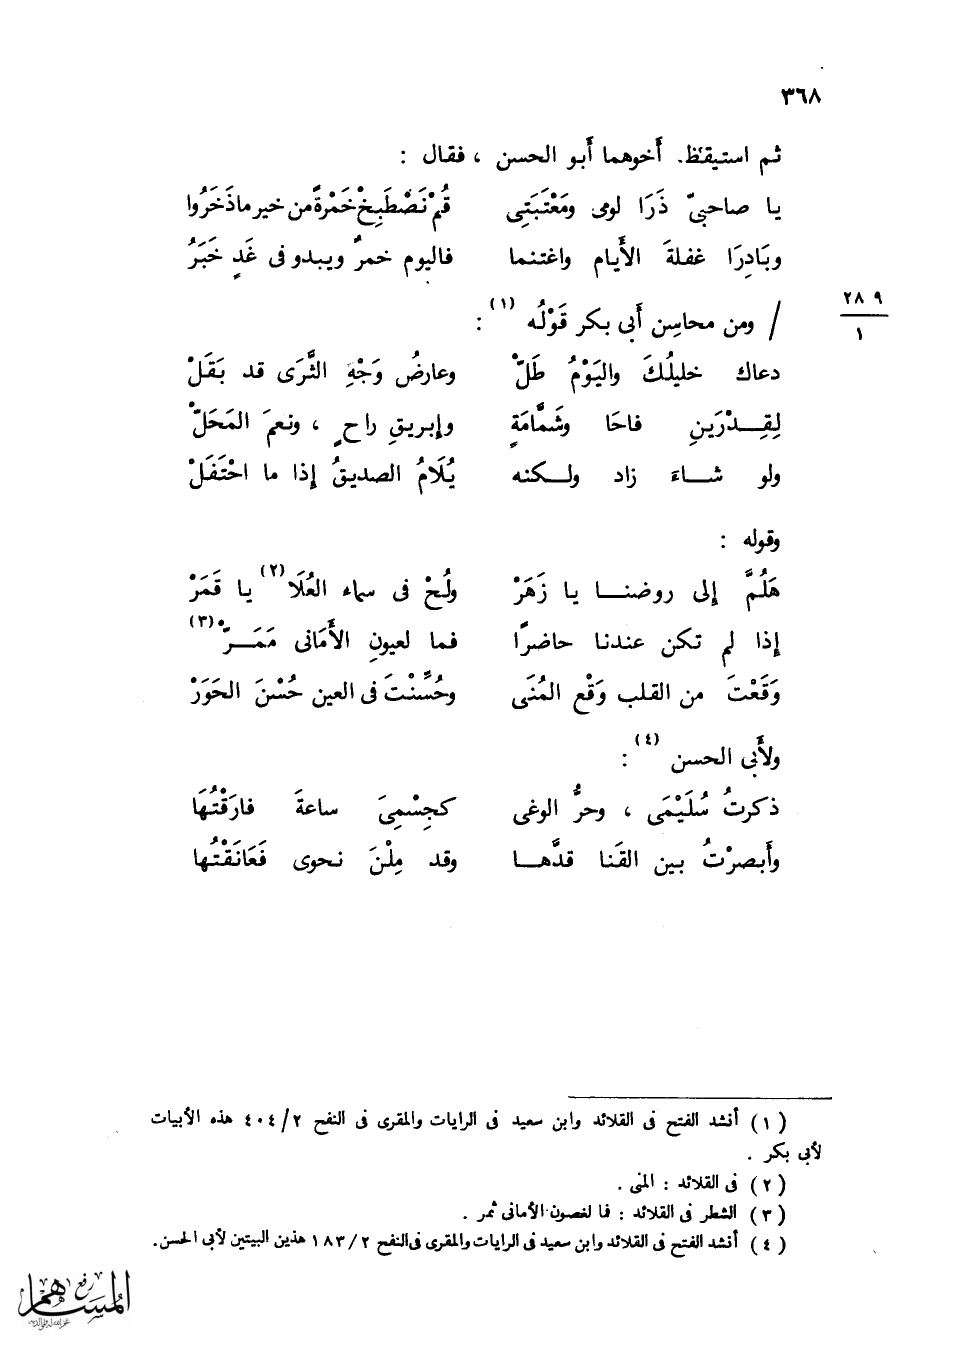 ٣٦٨
ثم استيقظ. أخوهما أبو الحسن ، فقال :
يا صاحبيّ ذَرَا لومى ومَعْتَبَتِى قُمْ نَصْطَبِحْ خَمْرةً من خير ماذَخَرُوا
وبَادِرَا غفلةَ الأَيام واغتنما فاليوم خمرٌ ويبدو فى غَدٍ خَبَرُ
/ ومن محاسِن أبى بكر قَوْلُه (١) :
٢٨٩
١
دعاك خليلُكَ واليَوْمُ طَلّْ وعارضُ وَجْهِ الثَّرَى قد بَقَلْ
لِقِـدْرَينِ فاحَا وشَمَّامَةٍ وإبريقِ راحٍ ، ونعمَ المَحَلّْ
ولو شـاءَ زاد ولـكنه يُلَامُ الصديقُ إذا ما احْتَفَلْ
وقوله :
هَلُمَّ إلى روضنـا يا زَهَرْ ولُحْ فى سماء العُلَا (٢) يا قَمَرْ
إذا لم تكن عندنا حاضرًا فما لعيونِ الأَمانى مَمَـرّْ (٣)
وَقَعْتَ من القلب وَقْع المُنَى وحُسِّنْتَ فى العين حُسْنَ الحَوَرْ
ولأَبى الحسن (٤) :
ذكرتُ سُلَيْمَى ، وحرُّ الوغى كجِسْمِىَ ساعةَ فارَقْتُهَا
وأَبصرْتُ بين القَنا قدَّهـا وقد مِلْنَ نحوى فَعَانَقْتُها
(١) أنشد الفتح فى القلائد وابن سعيد فى الرايات والمقرى فى النفح ٢/٤٠٤ هذه الأبيات
لأبى بكر .
(٢) فى القلائد : المنى .
(٣) الشطر فى القلائد : فما لغصون الأمانى ثمر .
(٤) أنشد الفتح فى القلائد وابن سعيد فى الرايات والمقرى فى النفح ٢/١٨٣ هذين البيتين لأبى الحسن.
رفع
المساهم